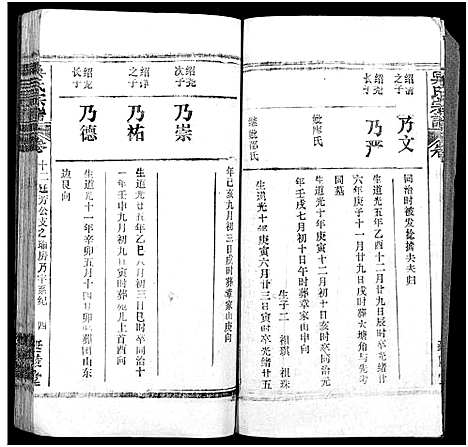 吳氏宗譜
卷
绍清
乃文
同治时被发捻掳去夫归
绍尧
乃严
生道光五年乙酉十二月廿九日辰时卒光绪
六年庚子十一月廿九日戌时葬六塘角与先考
同墓
妣廖氏
生道光十年庚寅十二月初十日亥时卒同治
年壬戌七月初十日午时葬章家山庚向
生子二 祖琪 祖珠
继妣邵氏
生道光十年庚寅六月廿三日寅时卒光绪廿五
年己亥九月初三日戌时葬章家山申向
绍尧
次子
乃崇
绍洋
之子
乃祐
生道光廿五年乙巳八月初三巳时卒同治十
一年壬申九月初九日寅时葬蚬儿上首西向
绍尧
长子
乃德
生道光十一年辛卯五月十四日卯时葬团山东
边艮向
吳氏宗譜
卷十二
四